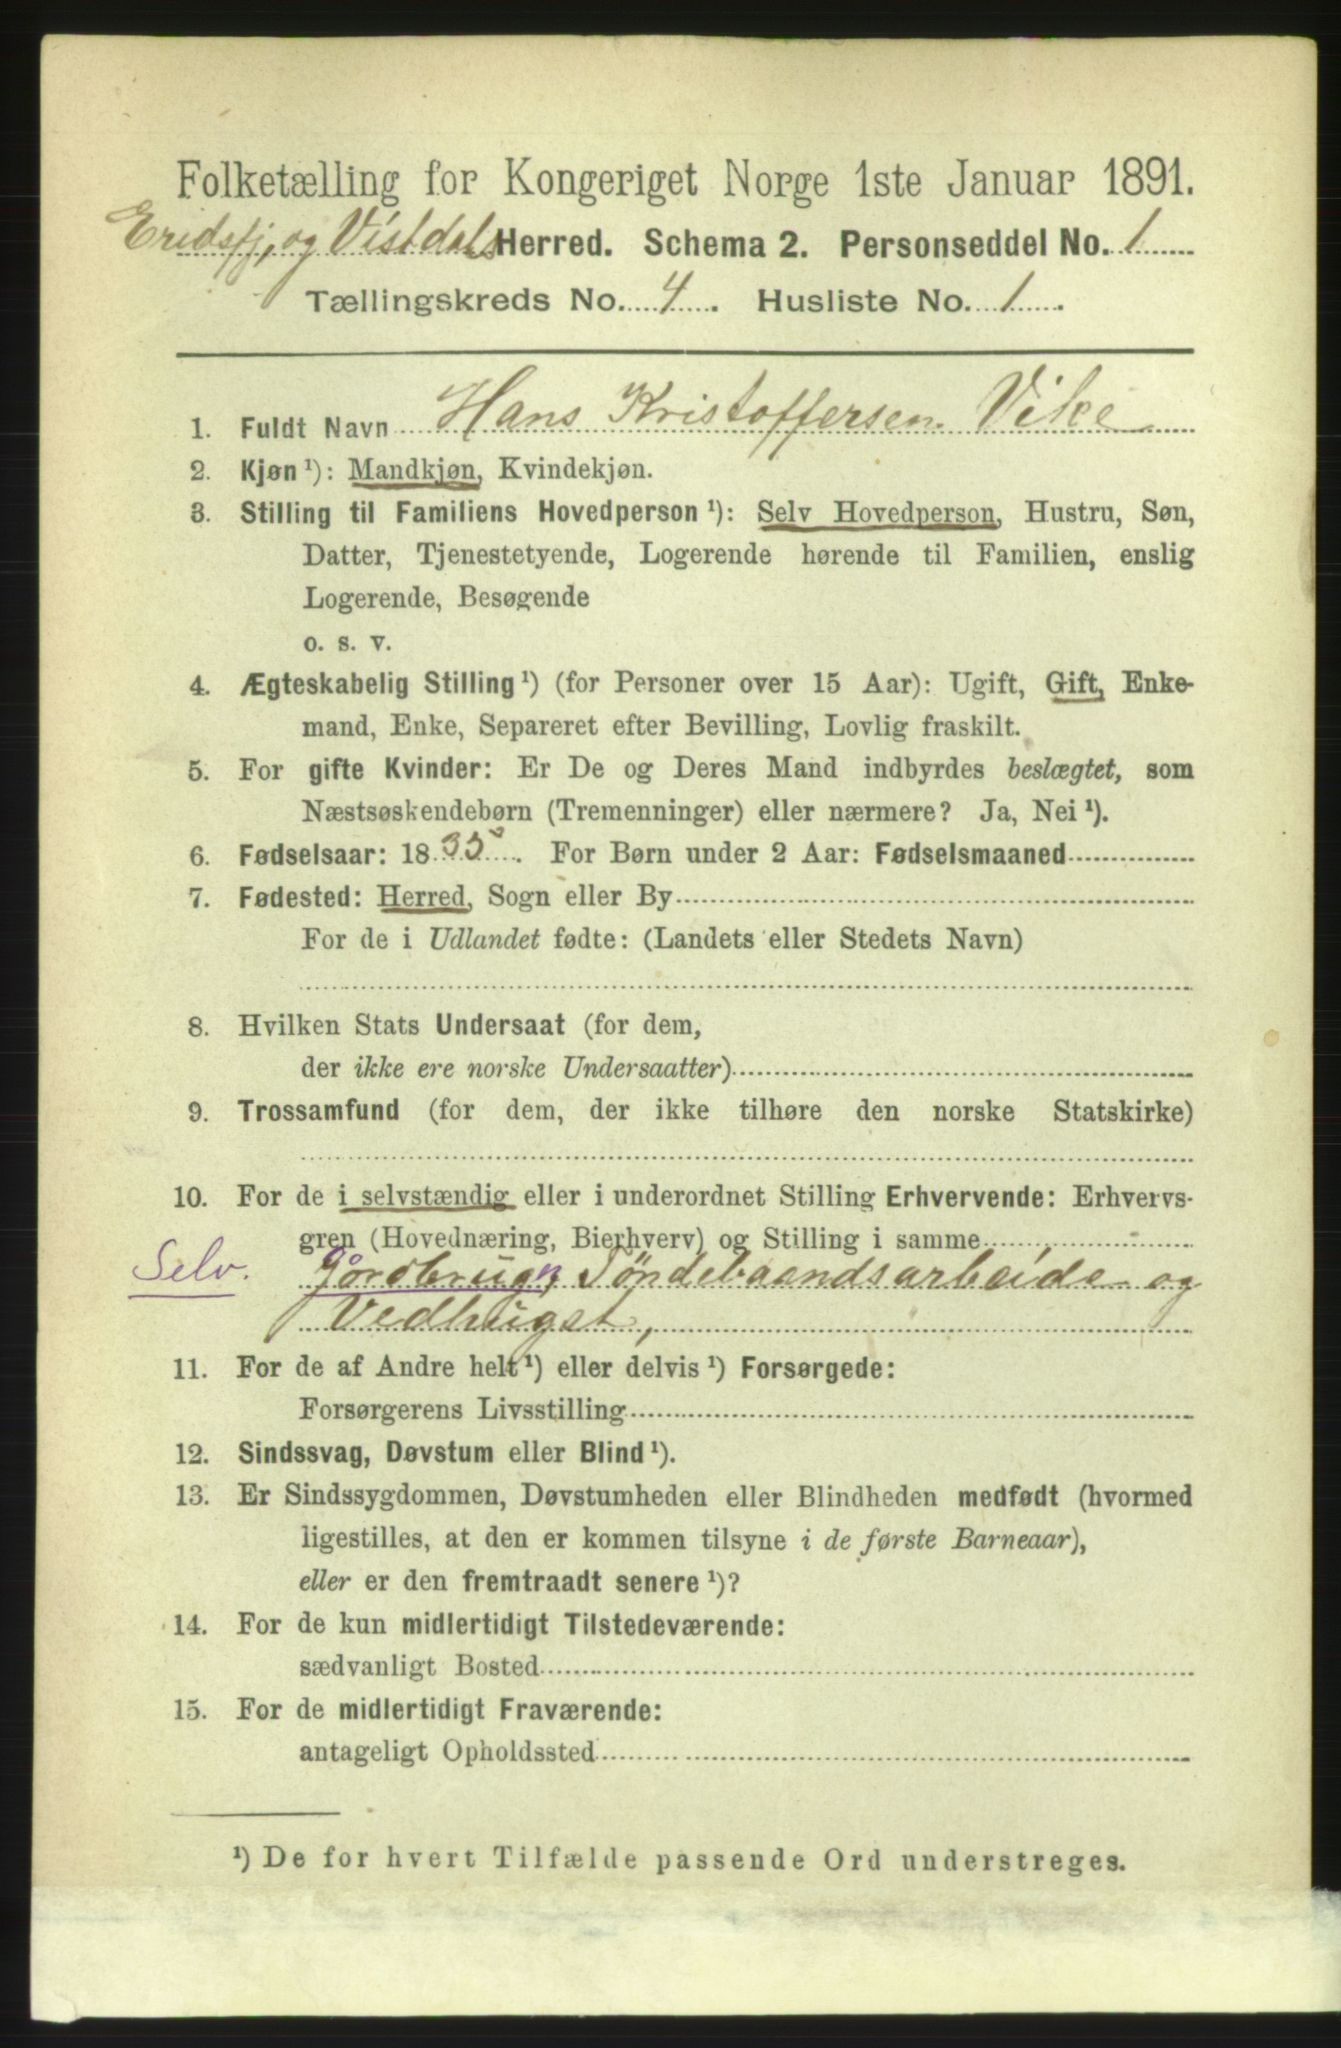 Folketælling for Kongeriget Norge 1ste Januar 1891.
Eridsfj, og Vistdals Herred. Schema 2. Personseddel No. 1
Tællingskreds No. 4. Husliste No. 1.
1. Fuldt Navn Hans Kristoffersen Vike
2. Kjøn ¹): Mandkjøn, Kvindekjøn.
3. Stilling til Familiens Hovedperson ¹): Selv Hovedperson, Hustru, Søn,
Datter, Tjenestetyende, Logerende hørende til Familien, enslig
Logerende, Besøgende
o. s. v.
4. Ægteskabelig Stilling ¹) (for Personer over 15 Aar): Ugift, Gift, Enke-
mand, Enke, Separeret efter Bevilling, Lovlig fraskilt.
5. For gifte Kvinder: Er De og Deres Mand indbyrdes beslægtet, som
Næstsøskendebørn (Tremenninger) eller nærmere? Ja, Nei ¹).
6. Fødselsaar: 1835. For Børn under 2 Aar: Fødselsmaaned
7. Fødested: Herred, Sogn eller By
For de i Udlandet fødte: (Landets eller Stedets Navn)
8. Hvilken Stats Undersaat (for dem,
der ikke ere norske Undersaatter)
9. Trossamfund (for dem, der ikke tilhøre den norske Statskirke)
10. For de i selvstændig eller i underordnet Stilling Erhvervende: Erhvervs-
gren (Hovednæring, Bierhverv) og Stilling i samme
Selv. Töndebaandsarbeide og
Vedhuget,
11. For de af Andre helt ¹) eller delvis ¹) Forsørgede:
Forsørgerens Livsstilling
12. Sindssvag, Døvstum eller Blind ¹).
13. Er Sindssygdommen, Døvstumheden eller Blindheden medfødt (hvormed
ligestilles, at den er kommen tilsyne i de første Barneaar),
eller er den fremtraadt senere ¹)?
14. For de kun midlertidigt Tilstedeværende:
sædvanligt Bosted
15. For de midlertidigt Fraværende:
antageligt Opholdssted
¹) De for hvert Tilfælde passende Ord understreges.